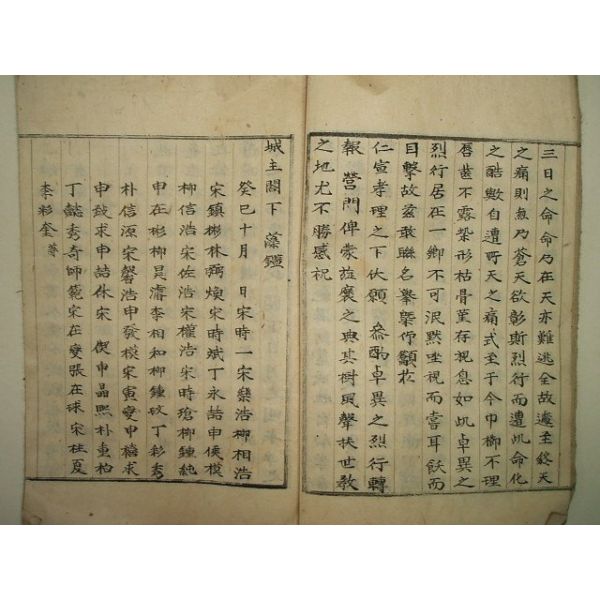 三日之命命乃在天亦難逃全故遽至終天
之痛則無乃蒼天欲彰斯烈行而遭此命化
之酷歟自遭所天之痛式至于今巾櫛不理
唇齒不露柴形枯骨菫存視息如此卓異之
烈行居在一鄉不可泯默坐視而嘗耳飫而
目擊故玆敢聯名擧槩仰籲於
仁宣孝理之下伏願 叅酌卓異之烈行轉
報 營門俾蒙旌褒之典其樹風聲扶世教
之地尤不勝感祝
城主閤下 藻鑑
癸巳十月 日宋時一宋欒浩柳相浩
宋鎮彬林 煥宋時斌丁永喆申俠模
柳信浩宋佐浩宋權浩宋時瑲柳鍾純
申在彬柳是濬李相和柳鍾 丁彩秀
朴信源宋馨浩申發模宋寅變申 求
申 求申喆休宋 偰申晶熙朴重柏
丁懿秀奇師範宋在變張在球宋柱夏
李彩奎等